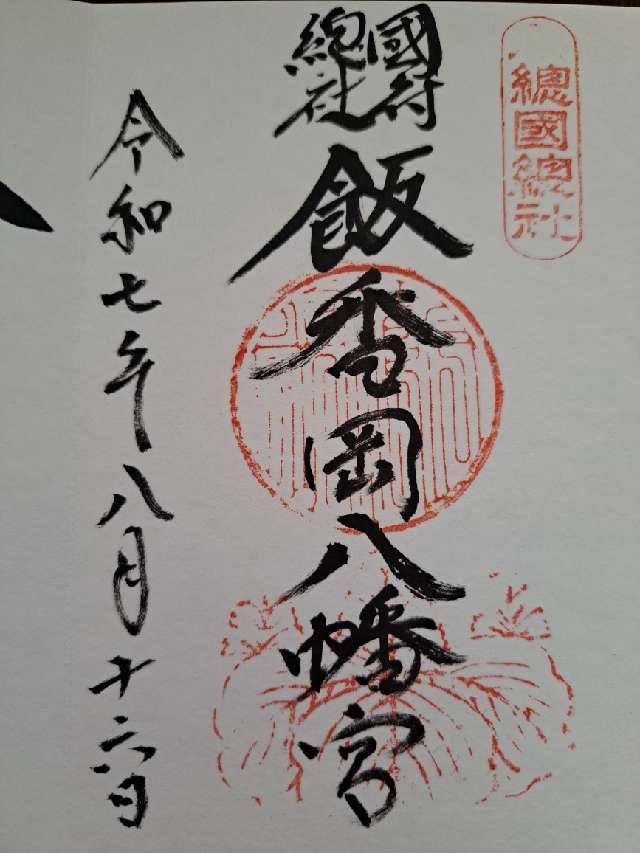 總國總社
國府
總社
飯香岡八幡宮
令和七年八月十六日